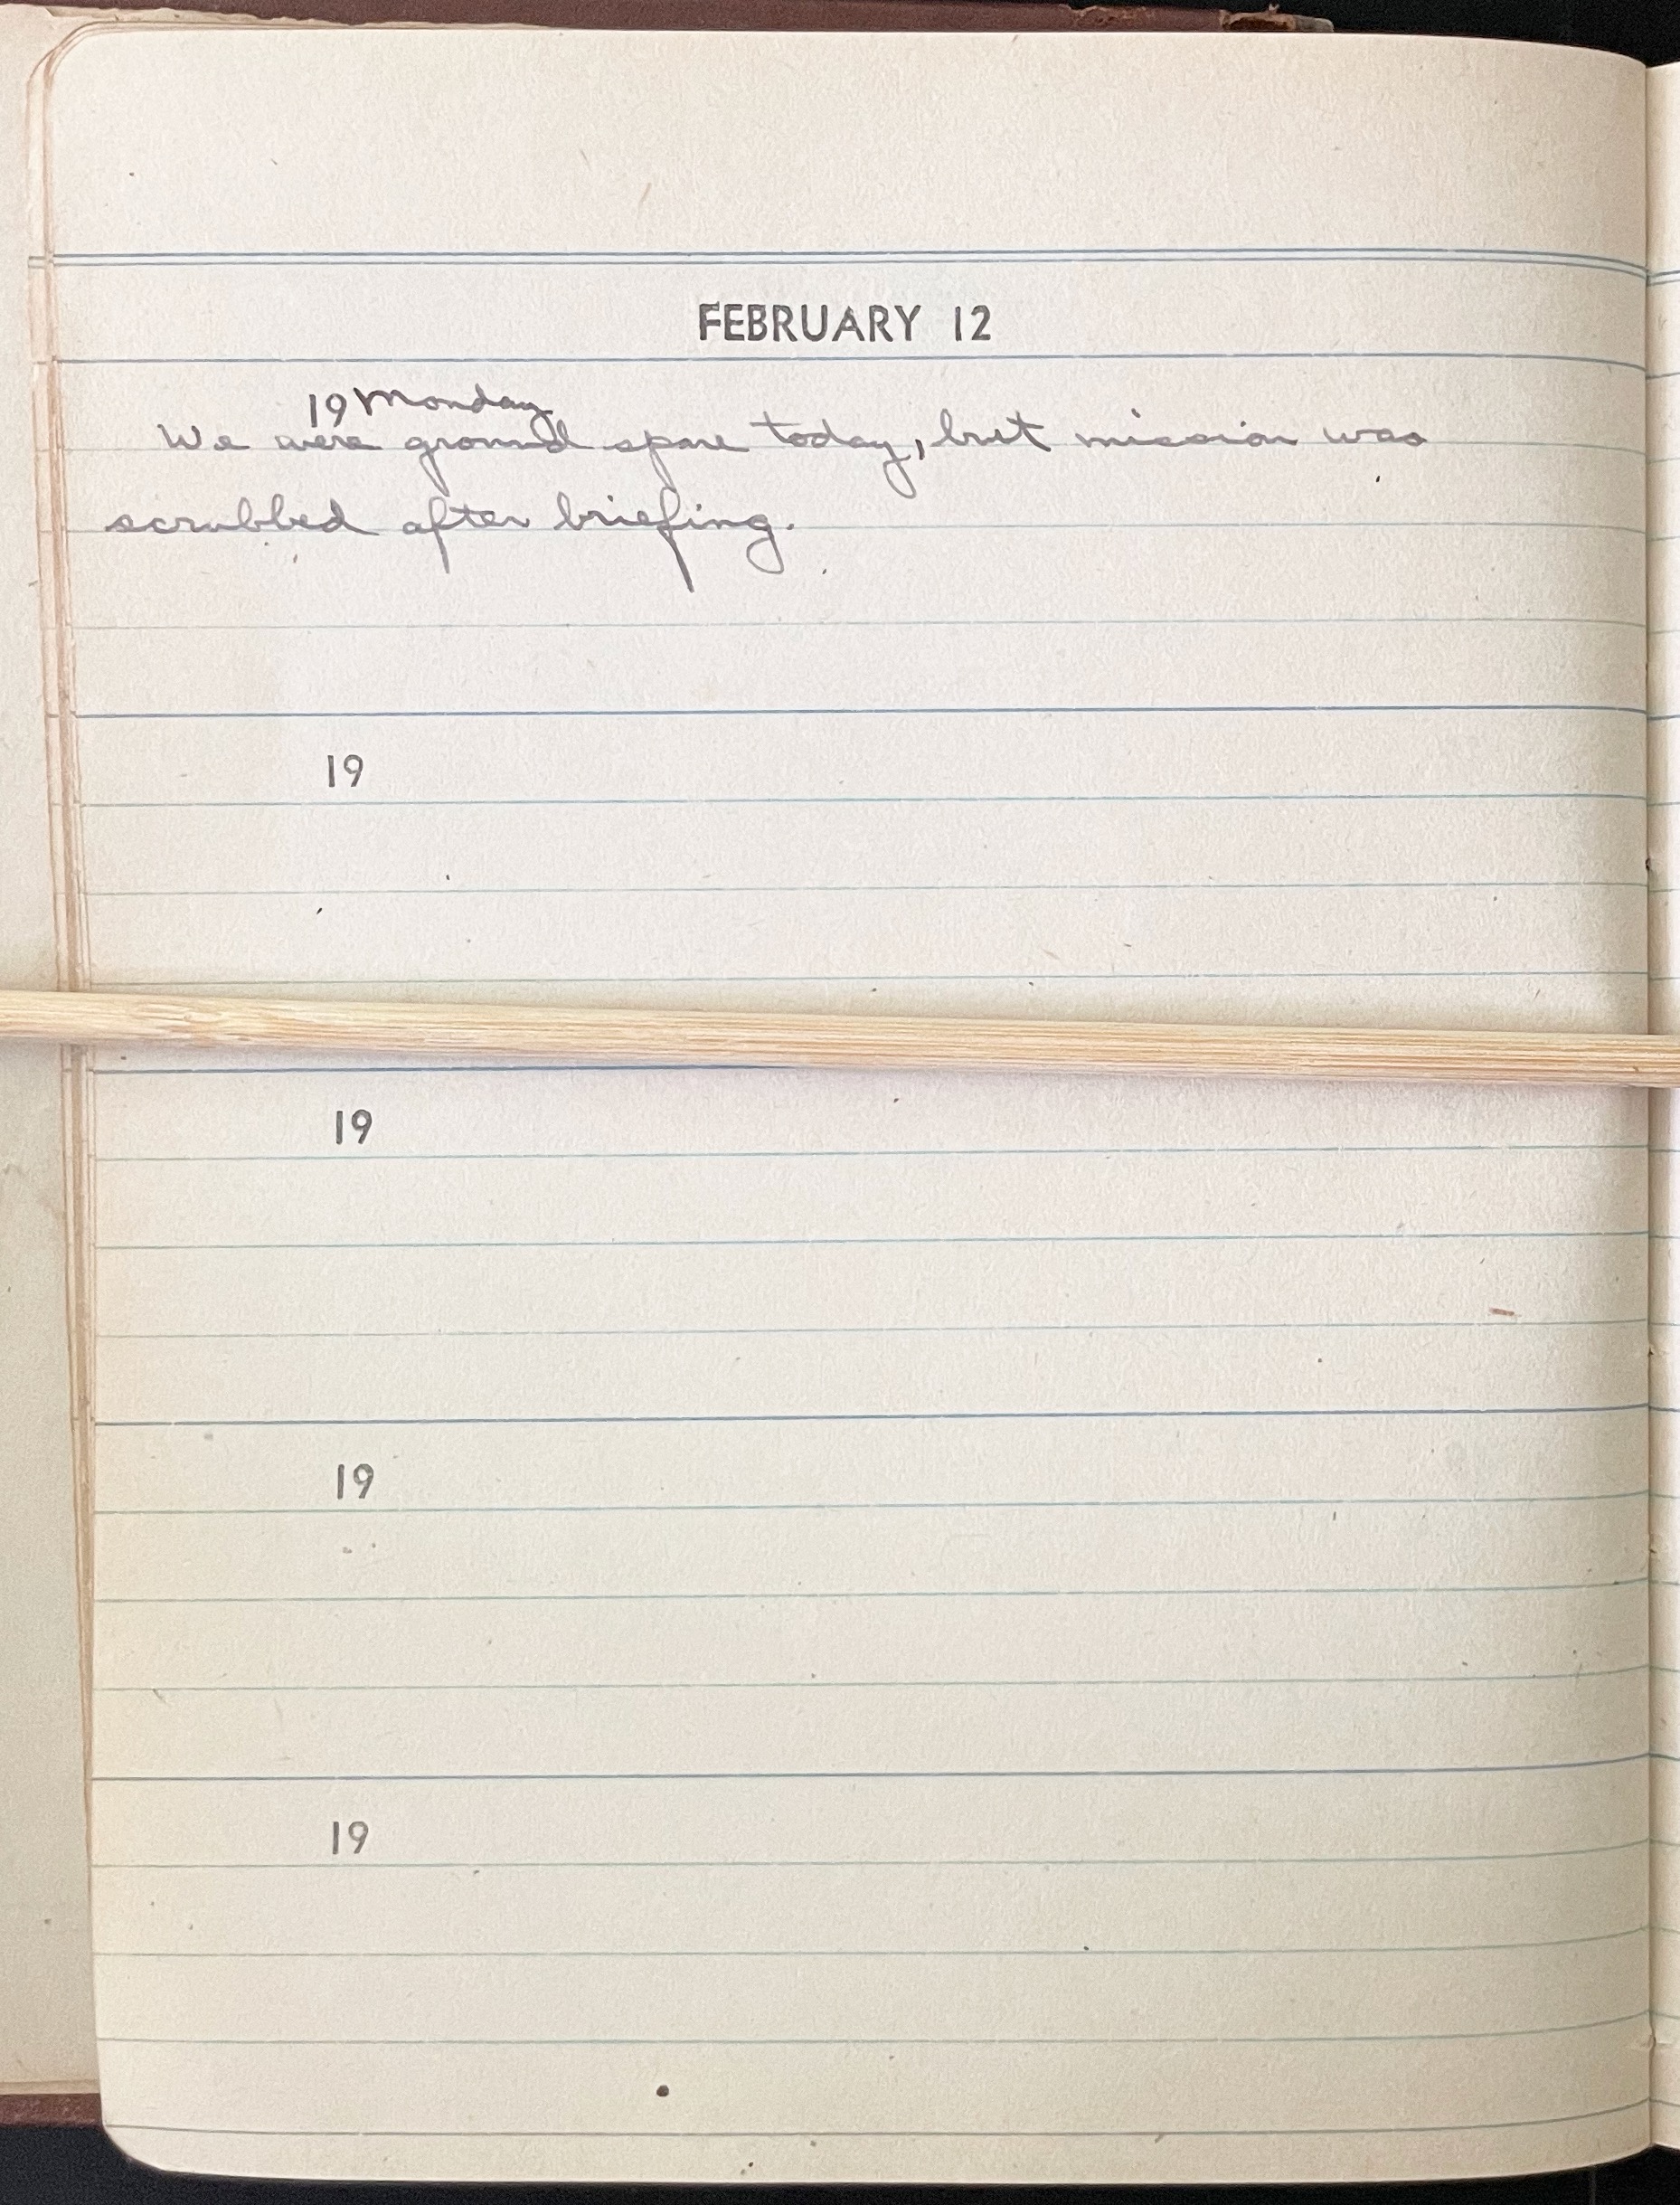 FEBRUARY 12
19 Monday
We were ground spare today, but mission was
scrubbed after briefing.
19
19
19
19